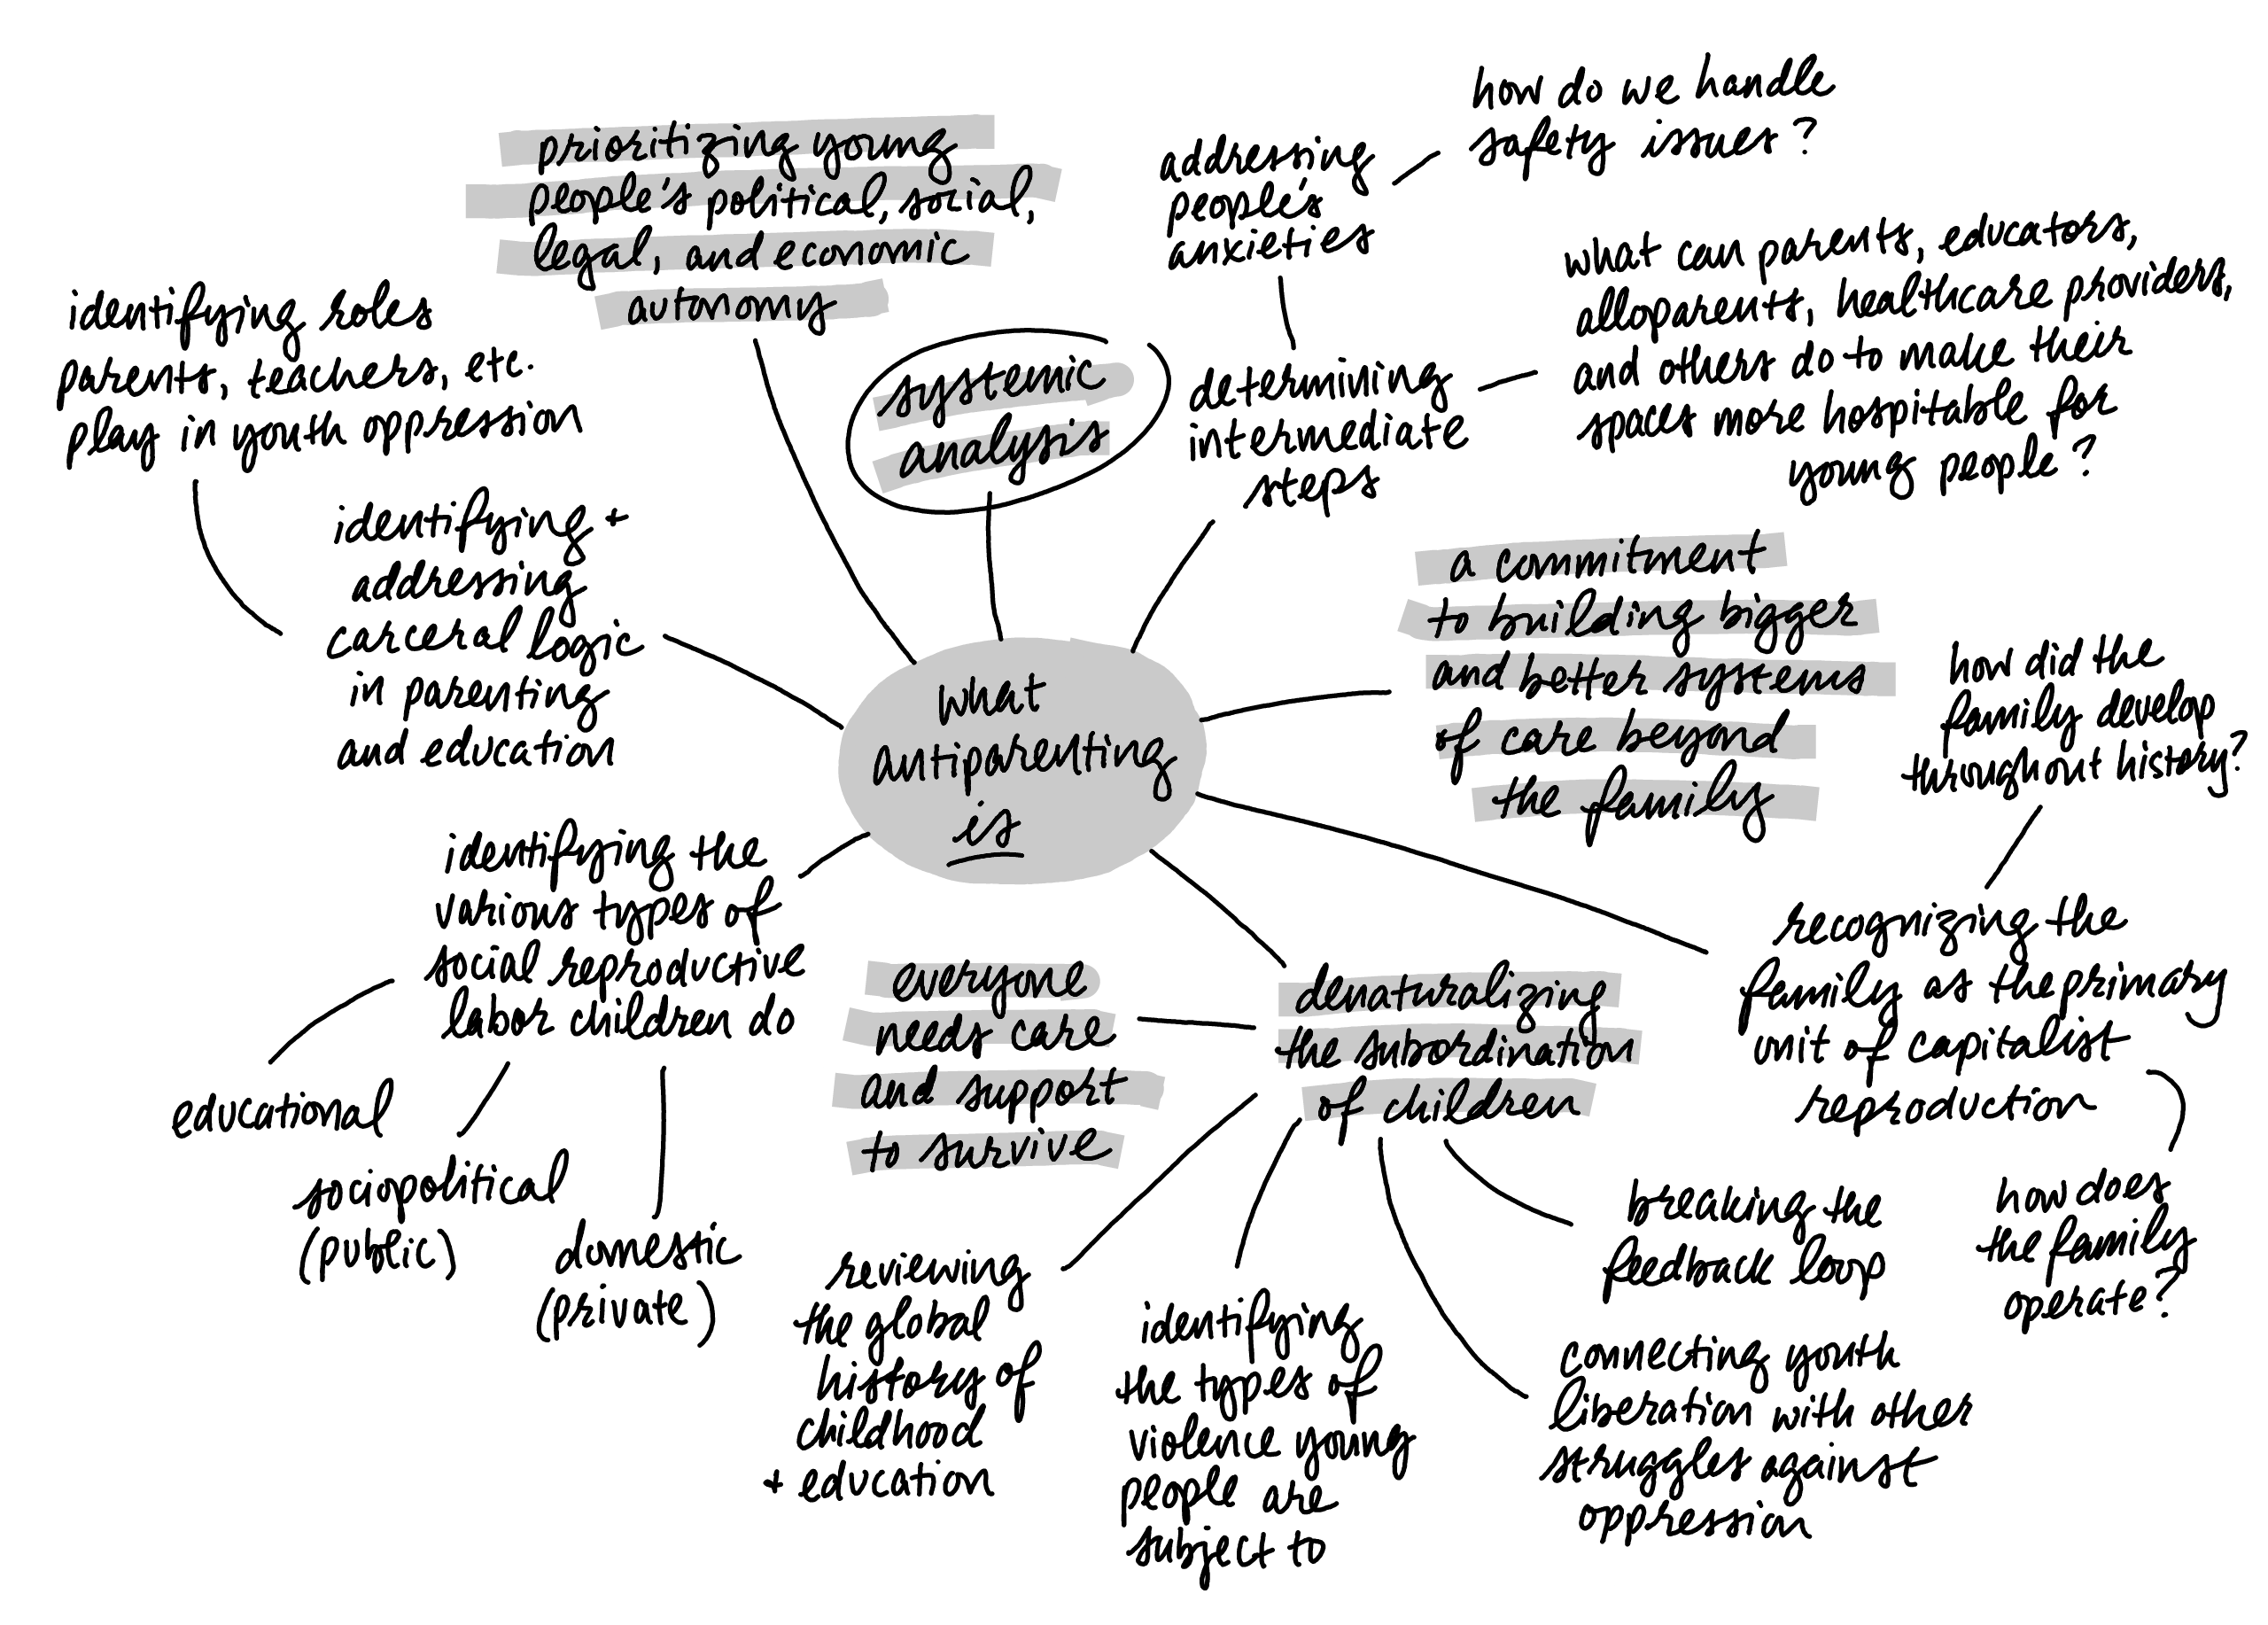 how do we handle
safety issues?
prioritizing young
people's political, social,
legal, and economic
autonomy
addressing
people's
anxieties
what can parents, educators,
alloparents, healthcare providers,
and others do to make their
spaces more hospitable for
young people?
identifying roles
parents, teachers, etc.
play in youth oppression
systemic
analysis
determining
intermediate
steps
identifying +
addressing
carceral logic
in parenting
and education
a commitment
to building bigger
and better systems
of care beyond
the family
what
antiparenting
is
how did the
family develop
throughout history?
identifying the
various types of
social reproductive
labor children do
educational
sociopolitical
(public)
domestic
(private)
everyone
needs care
and support
to survive
denaturalizing
the subordination
of children
recognizing the
family as the primary
unit of capitalist
reproduction
how does
the family
operate?
breaking the
feedback loop
reviewing
the global
history of
childhood
+ education
identifying
the types of
violence young
people are
subject to
connecting youth
liberation with other
struggles against
oppression